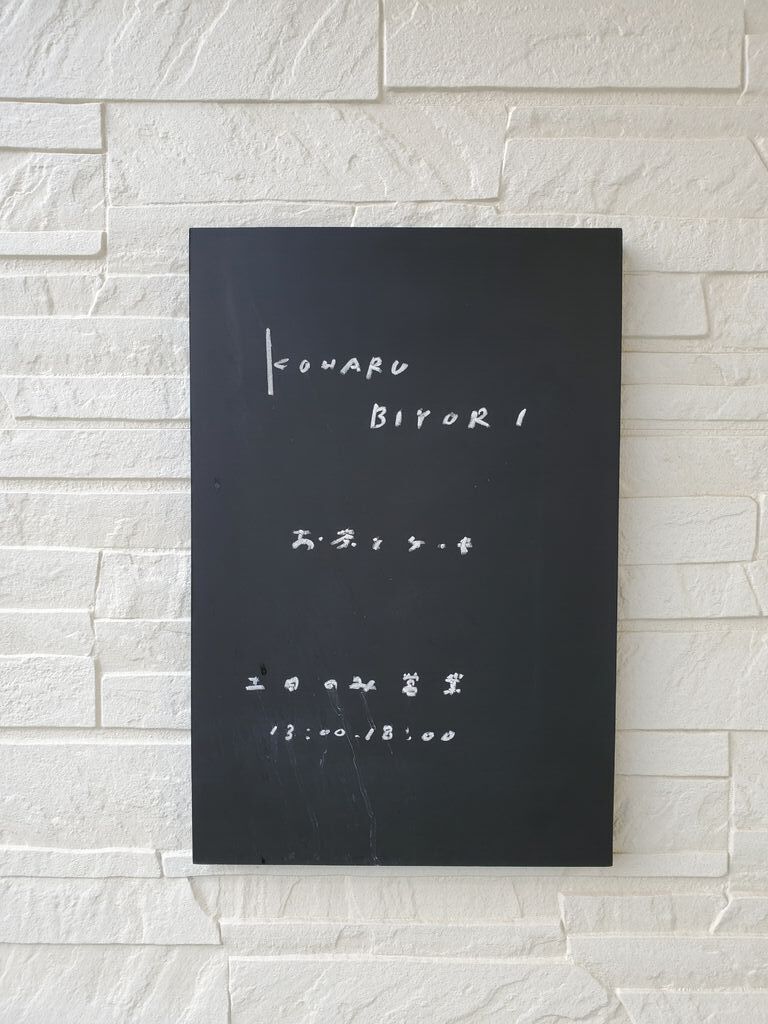 KOHARU
BIYORI
お茶とケーキ
土日のみ営業
13:00-18:00